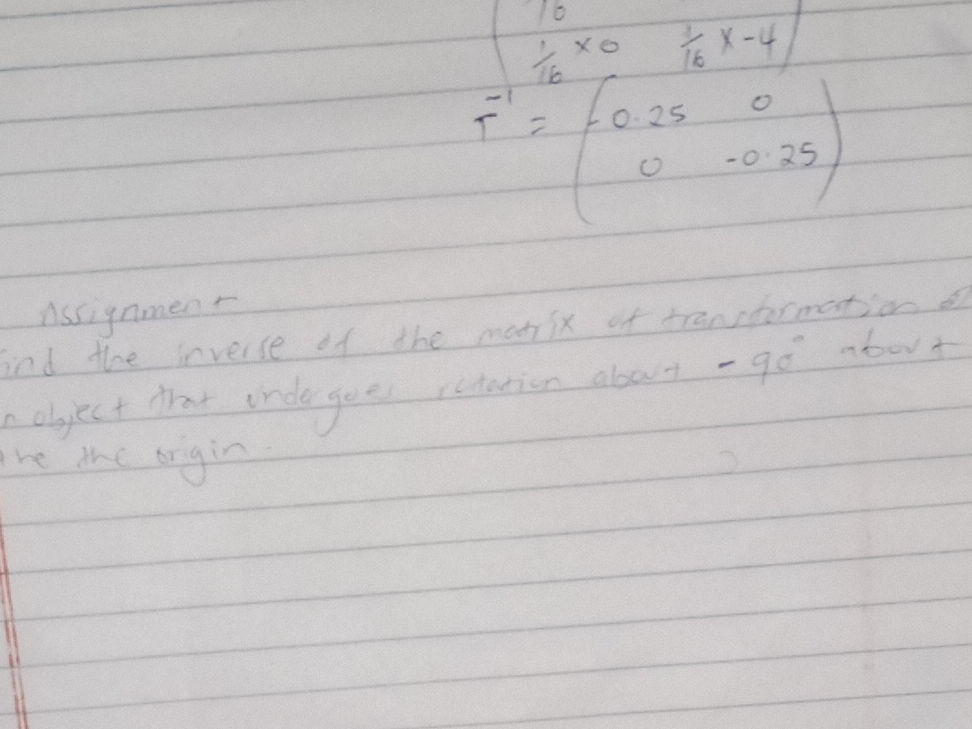 16
1/16 × 0 1/16 × -4
T⁻¹ = (-0.25 0
0 -0.25)
Assignment
ind the inverse of the matrix of transformation of
n object that undegoes rotation about -90° about
the the origin.